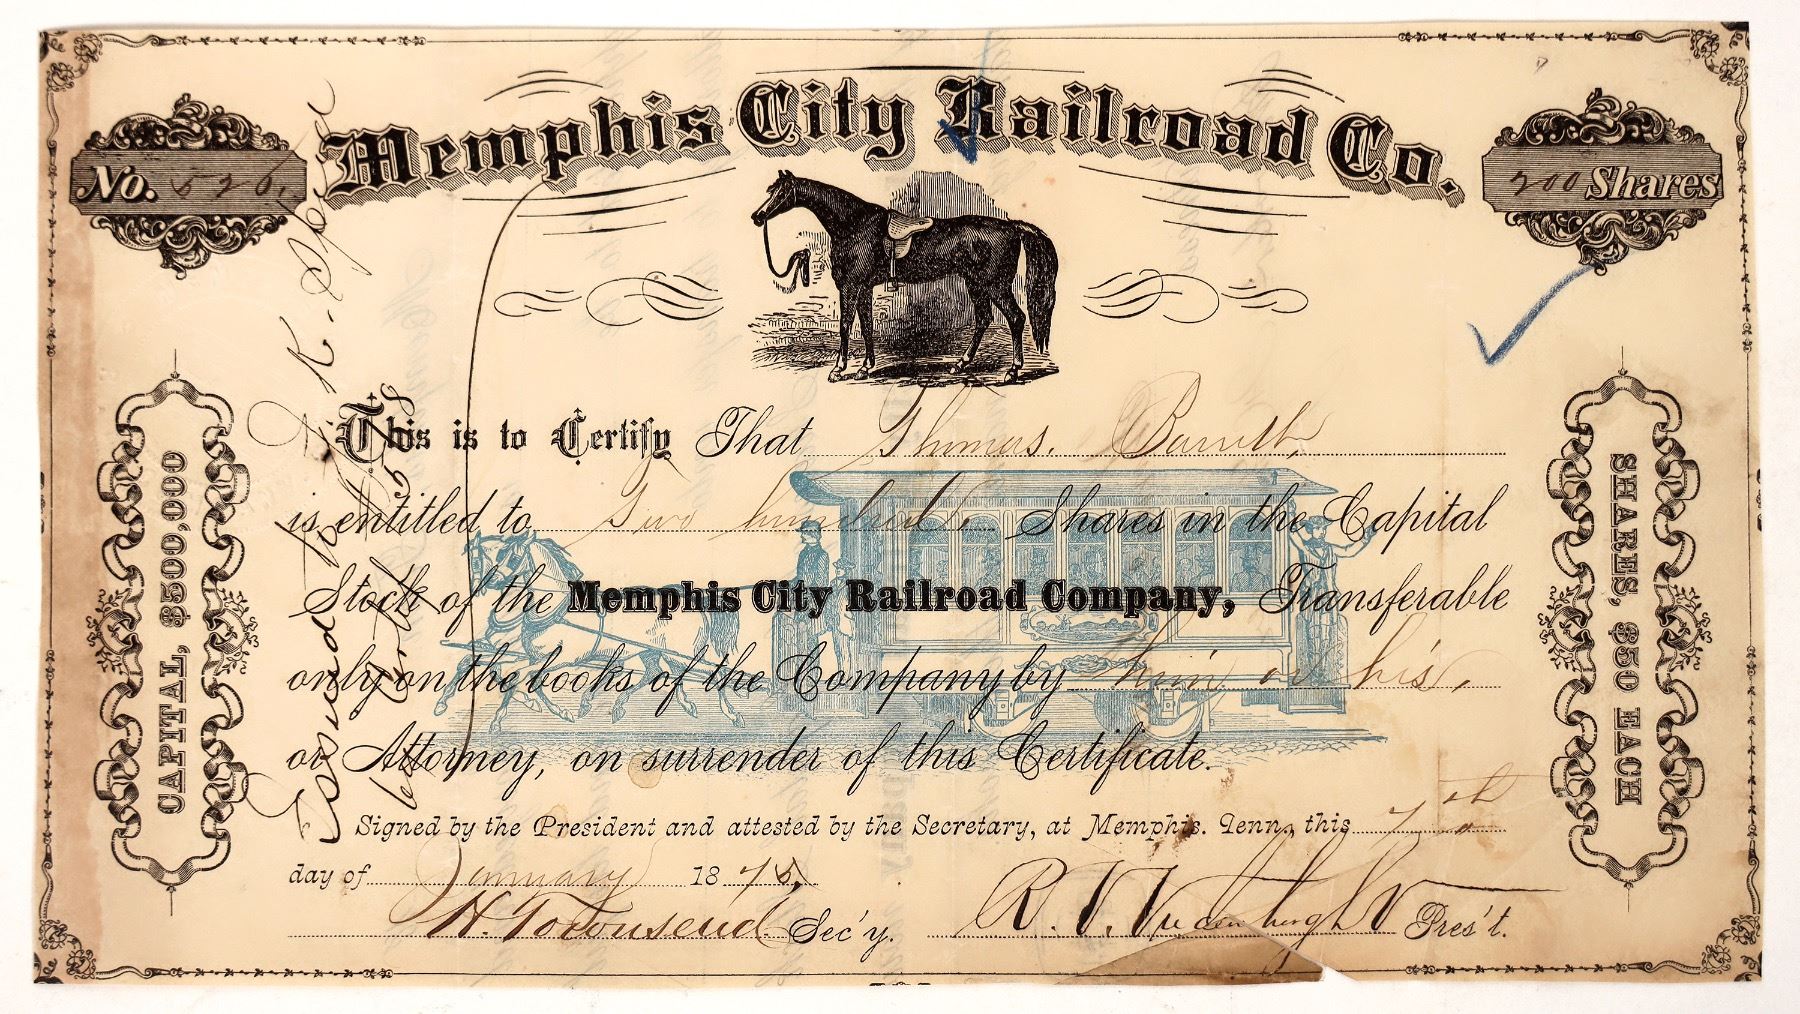 Memphis City Railroad Co.
No. 526.
200 Shares
This is to Certify That Thomas. Barrett,
is entitled to Two hundred Shares in the Capital
Stock of the Memphis City Railroad Company, Transferable
only on the books of the Company by him or his,
or Attorney, on surrender of this Certificate.
Signed by the President and attested by the Secretary, at Memphis. Tenn, this 7th
day of January 1875,
H. Townsend Sec'y.
R. V. Vredenburgh Pres't.
CAPITAL, $500,000
SHARES, $50 EACH